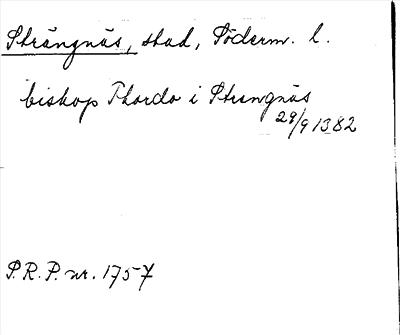 Strängnäs, stad, Söderm. l.
biskop Thordo i Strengnäs
29/9 1382
P.R.P. nr. 1757